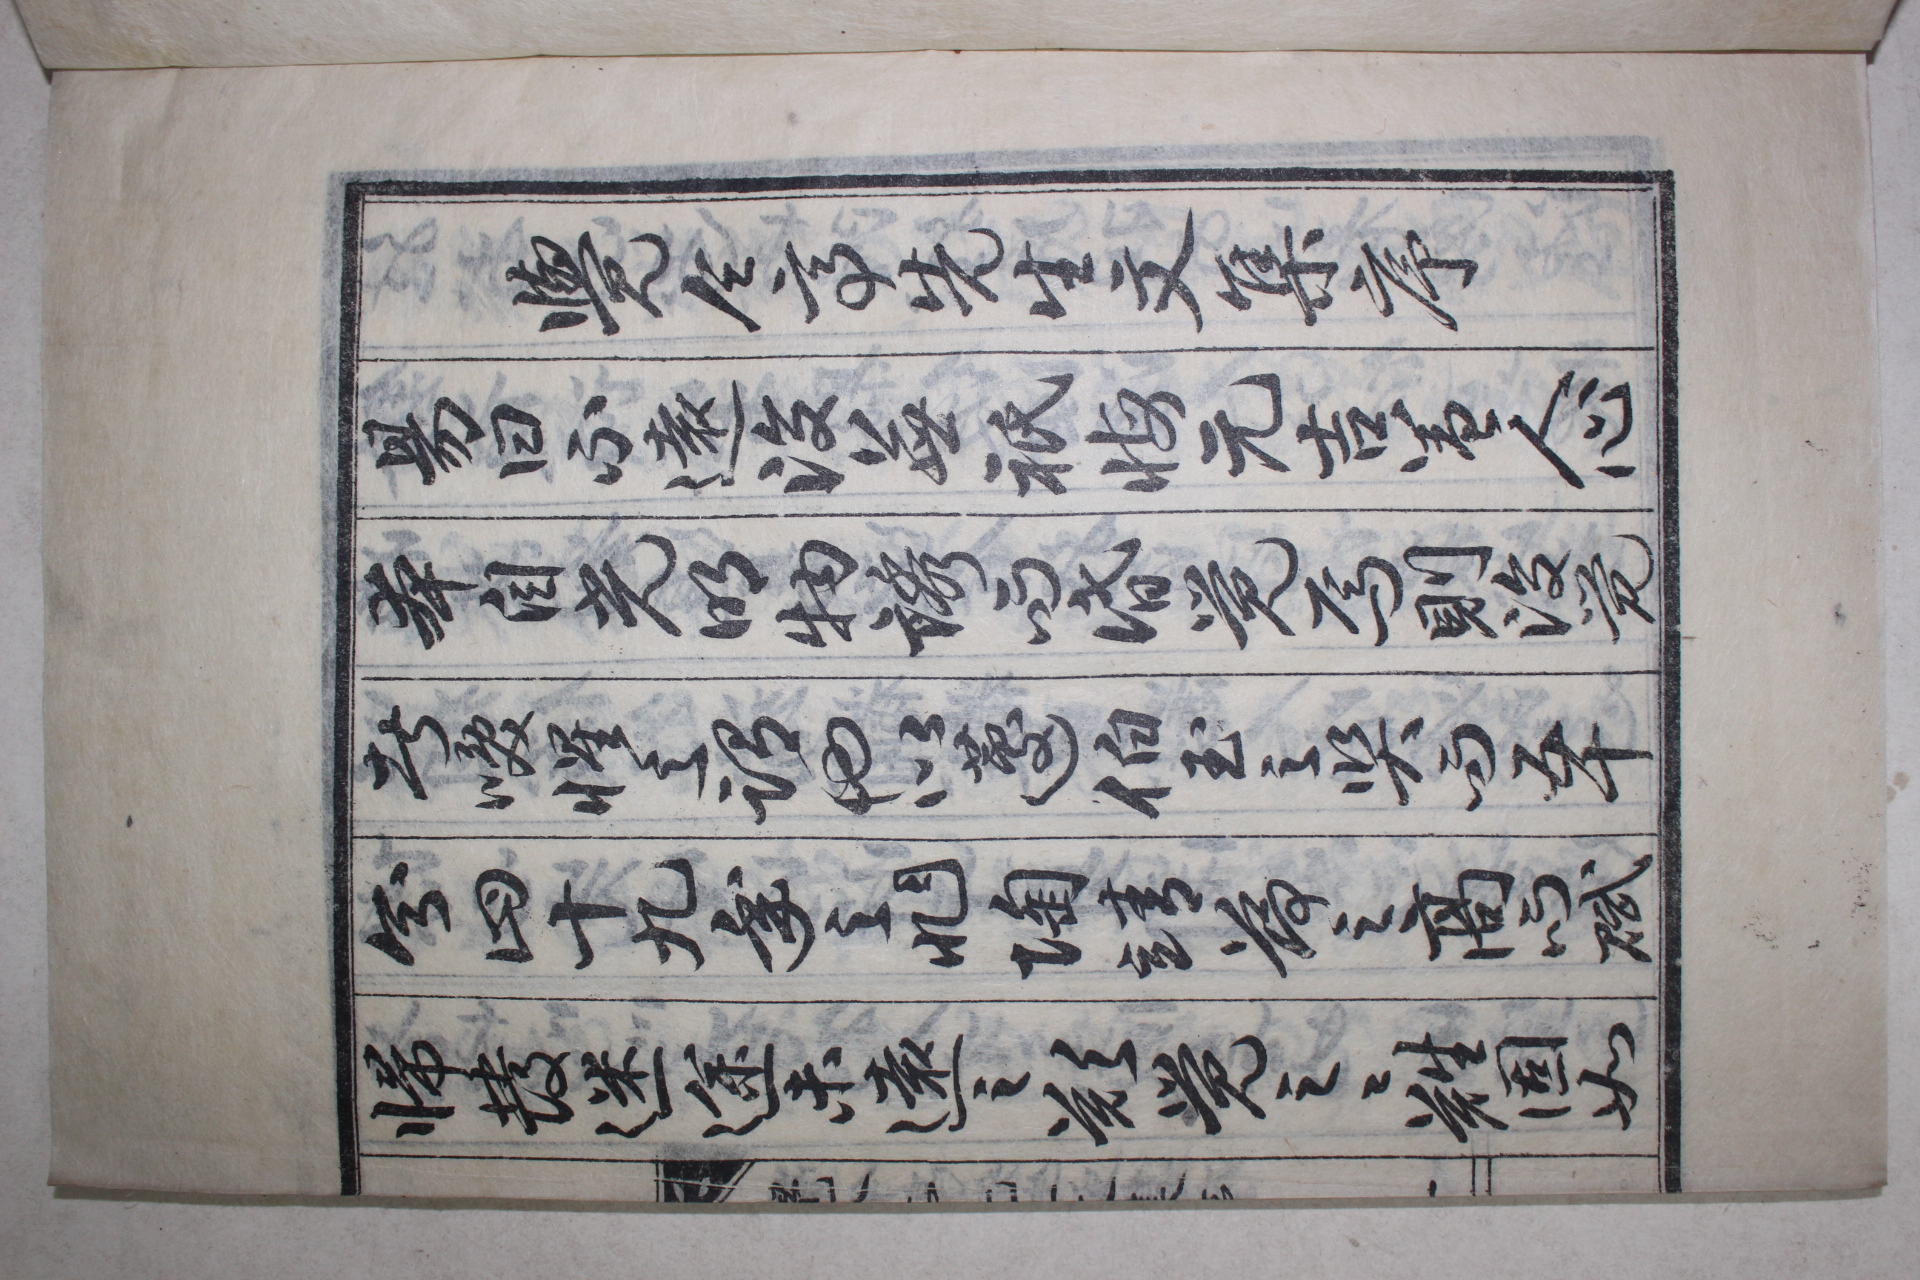 覺今亭先生文集序
易曰不遠復無祗悔元吉盖人心
本自光明物誘而昏覺焉則復覺
者喚惺之謂也以蘧伯玉之賢而五十
分四十九年之非陶靖節之高而賦
歸發迷途未遠之歎覺之〻難固如